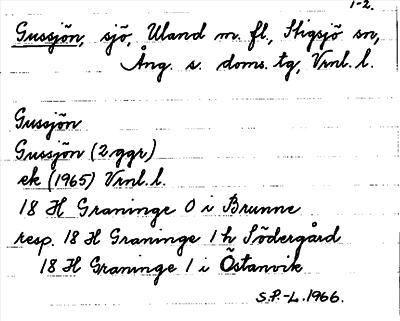 1-2.
Gussjön, sjö, Uland m. fl., Stigsjö sn,
Ång. s. doms. tg, Vrnl. l.
Gussjön
Gussjön (2 ggr)
ek (1965) Vrnl. l.
18 H Graninge 0 i Brunne
resp. 18 H Graninge 1 h Södergård
18 H Graninge 1 i Östanvik
S.P.-L. 1966.